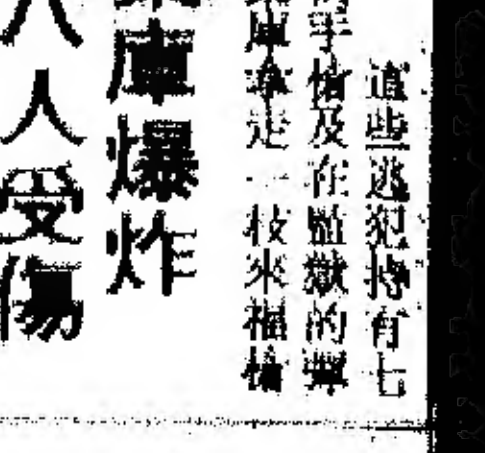 這些逃犯持有七
手槍及在監獄的彈
庫拿走一枝來福槍
庫爆炸
人受傷